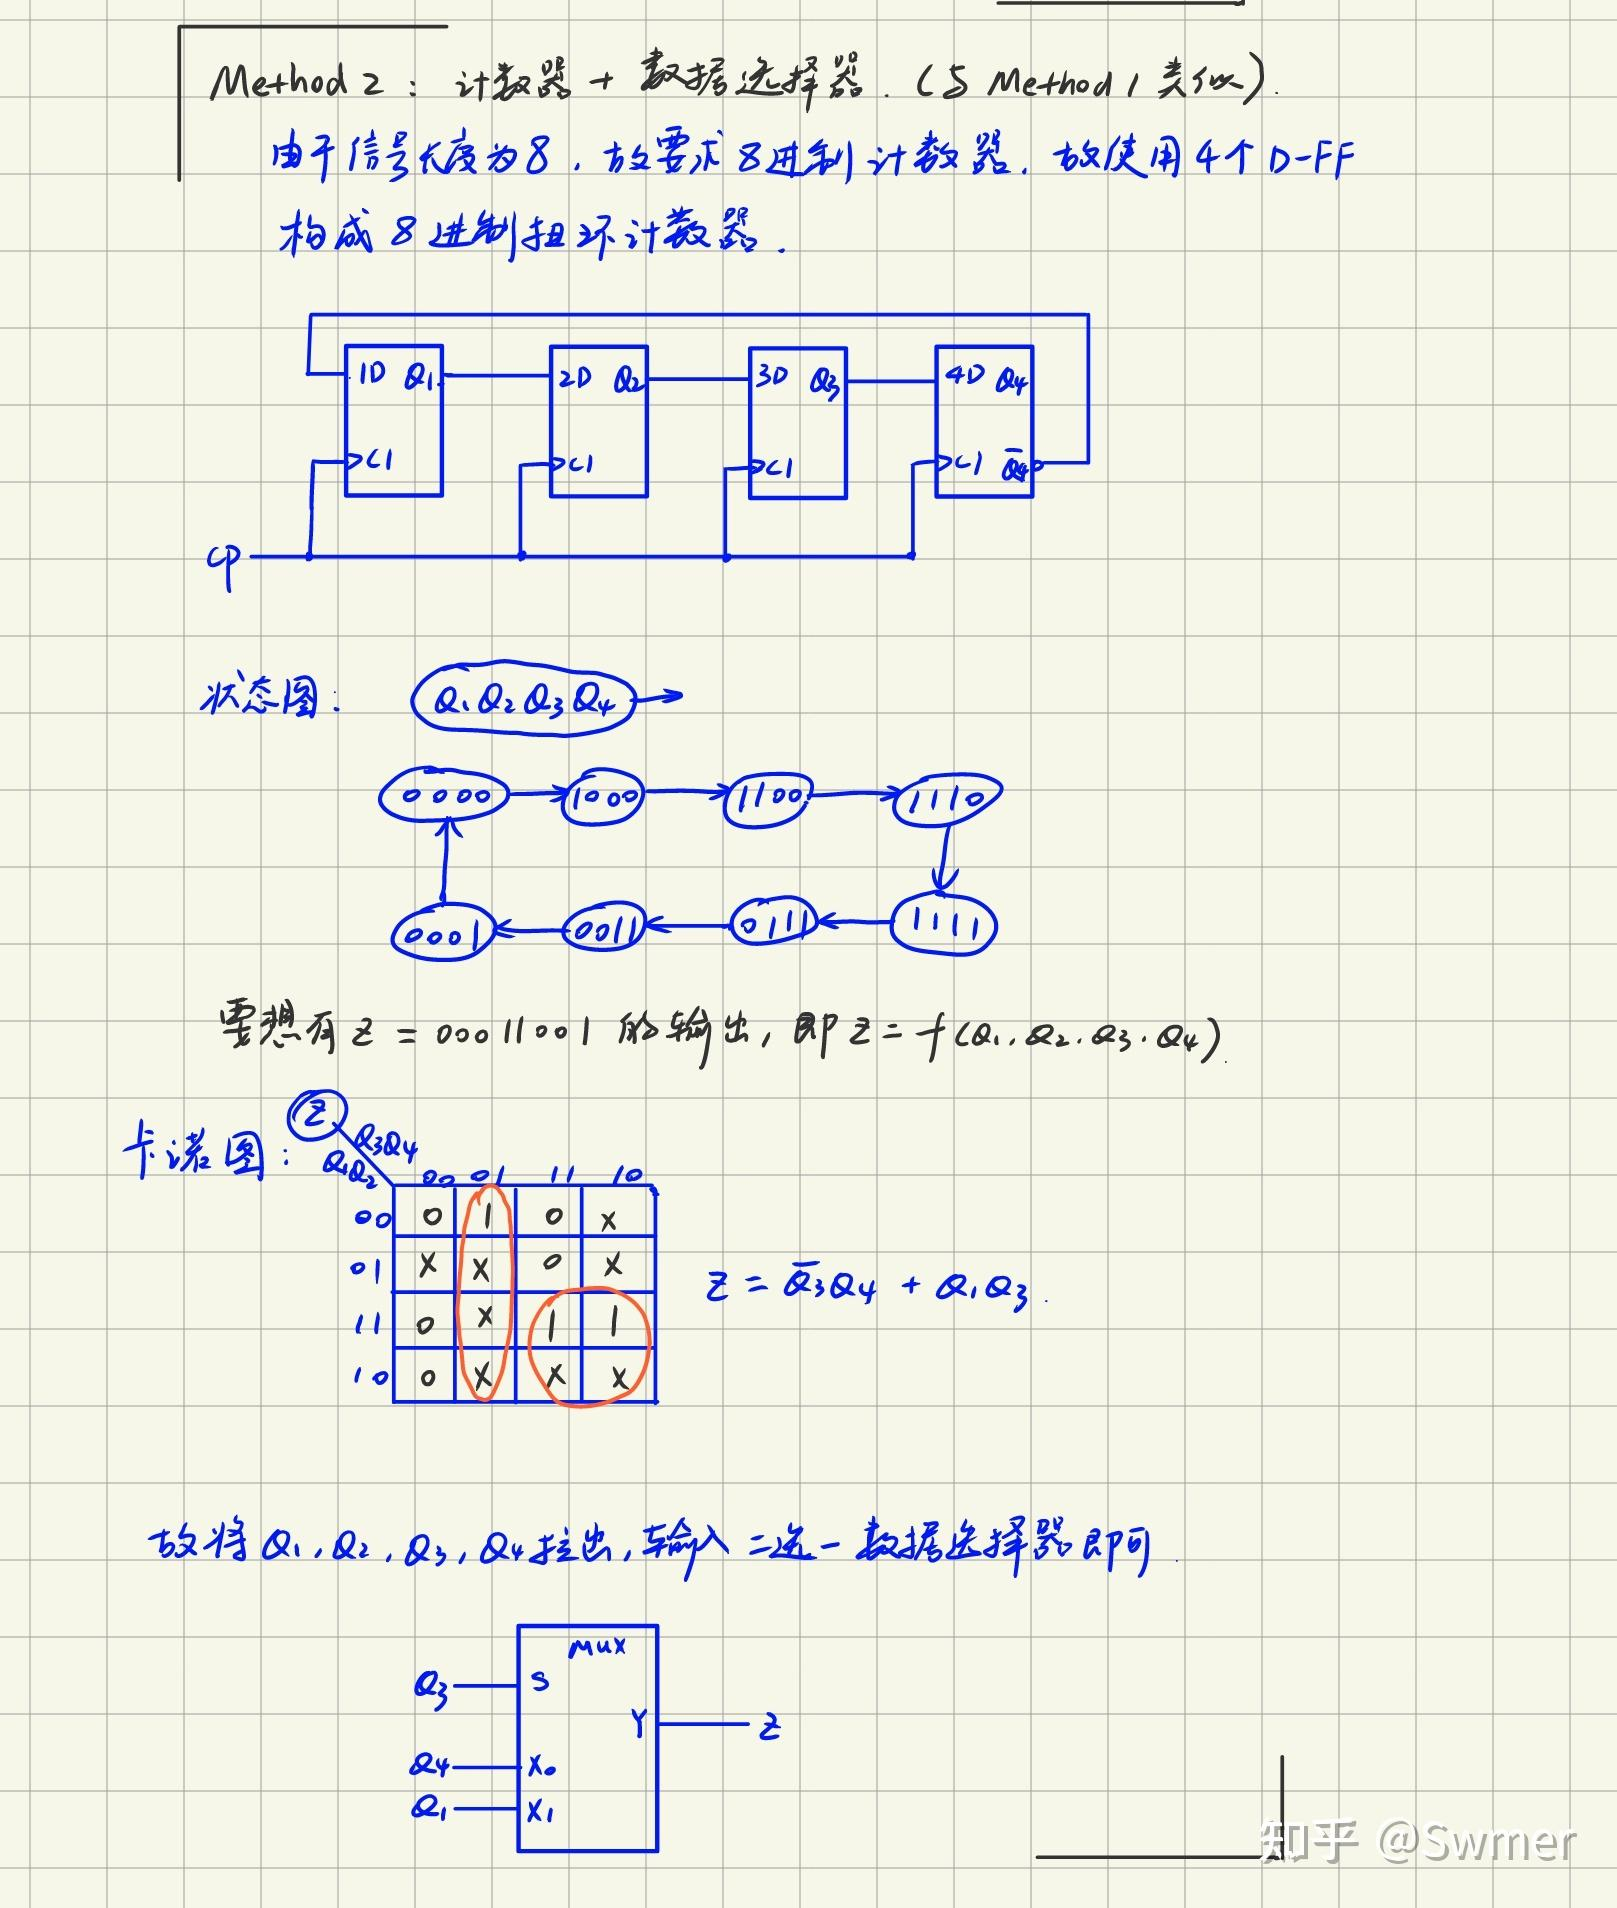 Method 2: 计数器 + 数据选择器. (与 Method 1 类似).
由于信号长度为8, 故要求8进制计数器, 故使用4个D-FF
构成8进制扭环计数器.
1D Q₁ 2D Q₂ 3D Q₃ 4D Q₄
C1 C1 C1 C1 Q̅₄
CP
状态图: Q₁Q₂Q₃Q₄
0000 1000 1100 1110
0001 0011 0111 1111
要想有Z=00011001的输出, 即Z=f(Q₁.Q₂.Q₃.Q₄).
卡诺图: Z Q₃Q₄
Q₁Q₂ 00 01 11 10
00 0 1 0 x
01 x x 0 x
11 0 x 1 1
10 0 x x x
Z = Q̅₃Q₄ + Q₁Q₃.
故将Q₁, Q₂, Q₃, Q₄拉出, 输入二选一数据选择器即可.
MUX
Q₃ S
Y Z
Q₄ X₀
Q₁ X₁
知乎 @Swmer